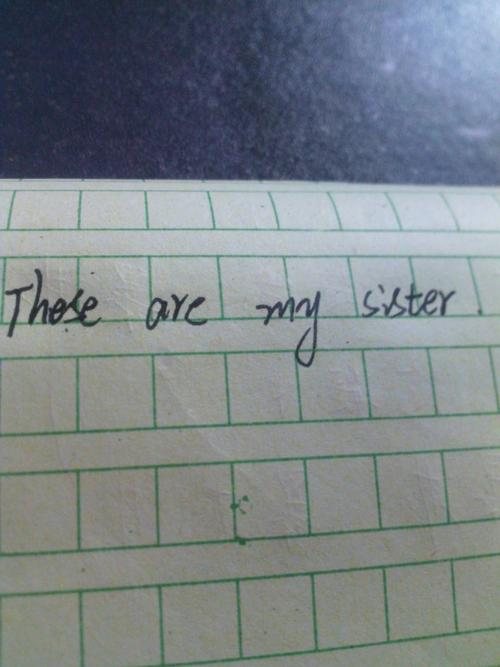 These are my sister.